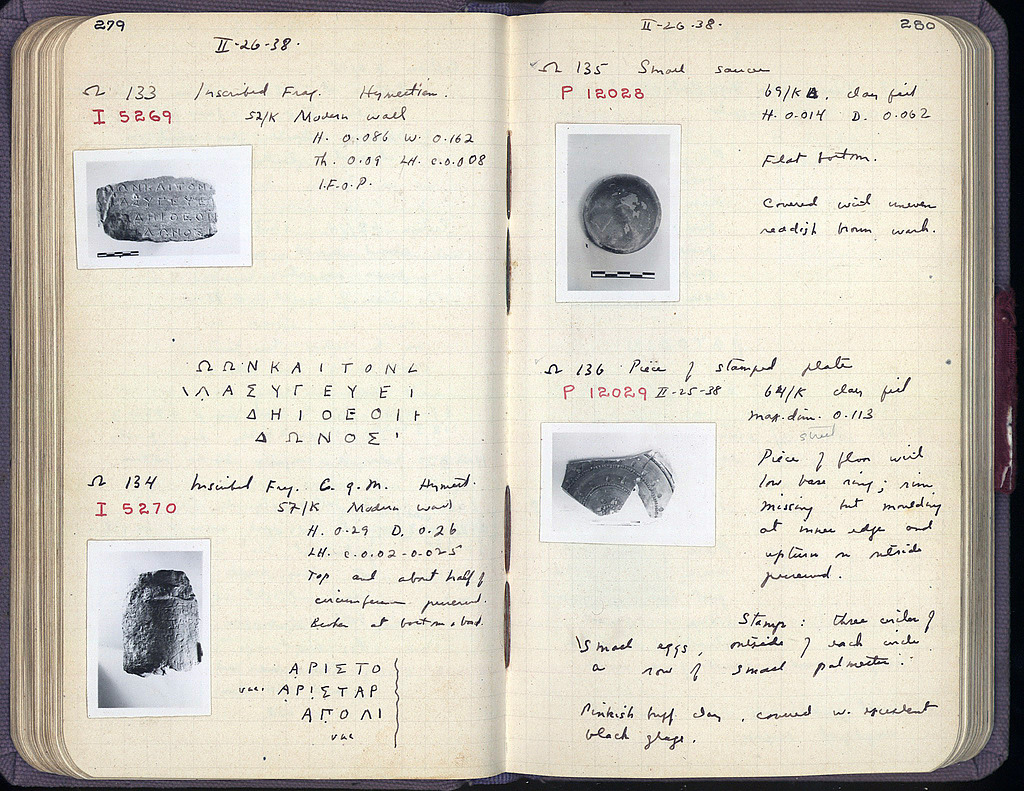 279
II-26-38.
Ω 133 Inscribed Frag. Hymettian.
I 5269 52/K Modern wall
H. 0.086 W. 0.162
Th. 0.09 LH. c.0.008
I.F.O.P.
ΩΝΚΑΙΤΟΝ
ΑΣΥΓΕΥΕ
ΔΗΙΟΕΟΙ
ΔΩΝΟΣ
ΩΩΝΚΑΙΤΟΝΛ
\ΛΑΣΥΓΕΥΕΙ
ΔΗΙΟΕΟΙΗ
ΔΩΝΟΣ'
Ω 134 Inscribed Frag. C.g.M. Hymett.
I 5270 57/K Modern wall
H. 0.29 D. 0.26
LH. c.0.02-0.025
Top and about half of
circumference preserved.
Broken at bottom
ΑΡΙΣΤΟ
vac. ΑΡΙΣΤΑΡ
ΑΠΟΛΙ
vac
280
II-26-38.
Ω 135 Small saucer
P 12028 69/K clay fill
H. 0.014 D. 0.062
Flat bottom.
Covered with uneven
reddish brown wash.
Ω 136 Piece of stamped plate
P 12029 II-25-38 64/K clay fill
max. dim. 0.113
street
Piece of floor with
low base ring; rim
missing but moulding
at inner edge and
upturn on outside
preserved.
Stamp: three circles of
small eggs, outside of each circle
a row of small palmettes.
Pinkish buff clay, covered w. excellent
black glaze.